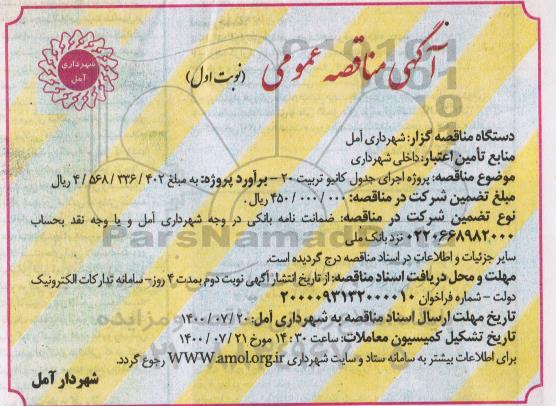 شهرداری
آمل
آگهی مناقصه عمومی (نوبت اول)
دستگاه مناقصه گزار: شهرداری آمل
منابع تأمین اعتبار: داخلی شهرداری
موضوع مناقصه: پروژه اجرای جدول کانیو تربیت ۲۰ - برآورد پروژه: به مبلغ ۴۰۲ / ۳۳۶ / ۵۶۸ / ۴ ریال
مبلغ تضمین شرکت در مناقصه: ۰۰۰ / ۰۰۰ / ۴۵۰ ریال.
نوع تضمین شرکت در مناقصه: ضمانت نامه بانکی در وجه شهرداری آمل و یا وجه نقد بحساب
۰۲۲۰۶۶۸۹۸۲۰۰۰ نزد بانک ملی
سایر جزئیات و اطلاعات در اسناد مناقصه درج گردیده است.
مهلت و محل دریافت اسناد مناقصه: از تاریخ انتشار آگهی نوبت دوم بمدت ۴ روز- سامانه تدارکات الکترونیک
دولت - شماره فراخوان ۲۰۰۰۰۹۳۱۳۲۰۰۰۰۱۰
تاریخ مهلت ارسال اسناد مناقصه به شهرداری آمل: ۲۰ / ۰۷ / ۱۴۰۰
تاریخ تشکیل کمیسیون معاملات: ساعت ۱۴:۳۰ مورخ ۲۱ / ۰۷ / ۱۴۰۰
برای اطلاعات بیشتر به سامانه ستاد و سایت شهرداری WWW.amol.org.ir رجوع گردد.
شهردار آمل
ParsNamadData